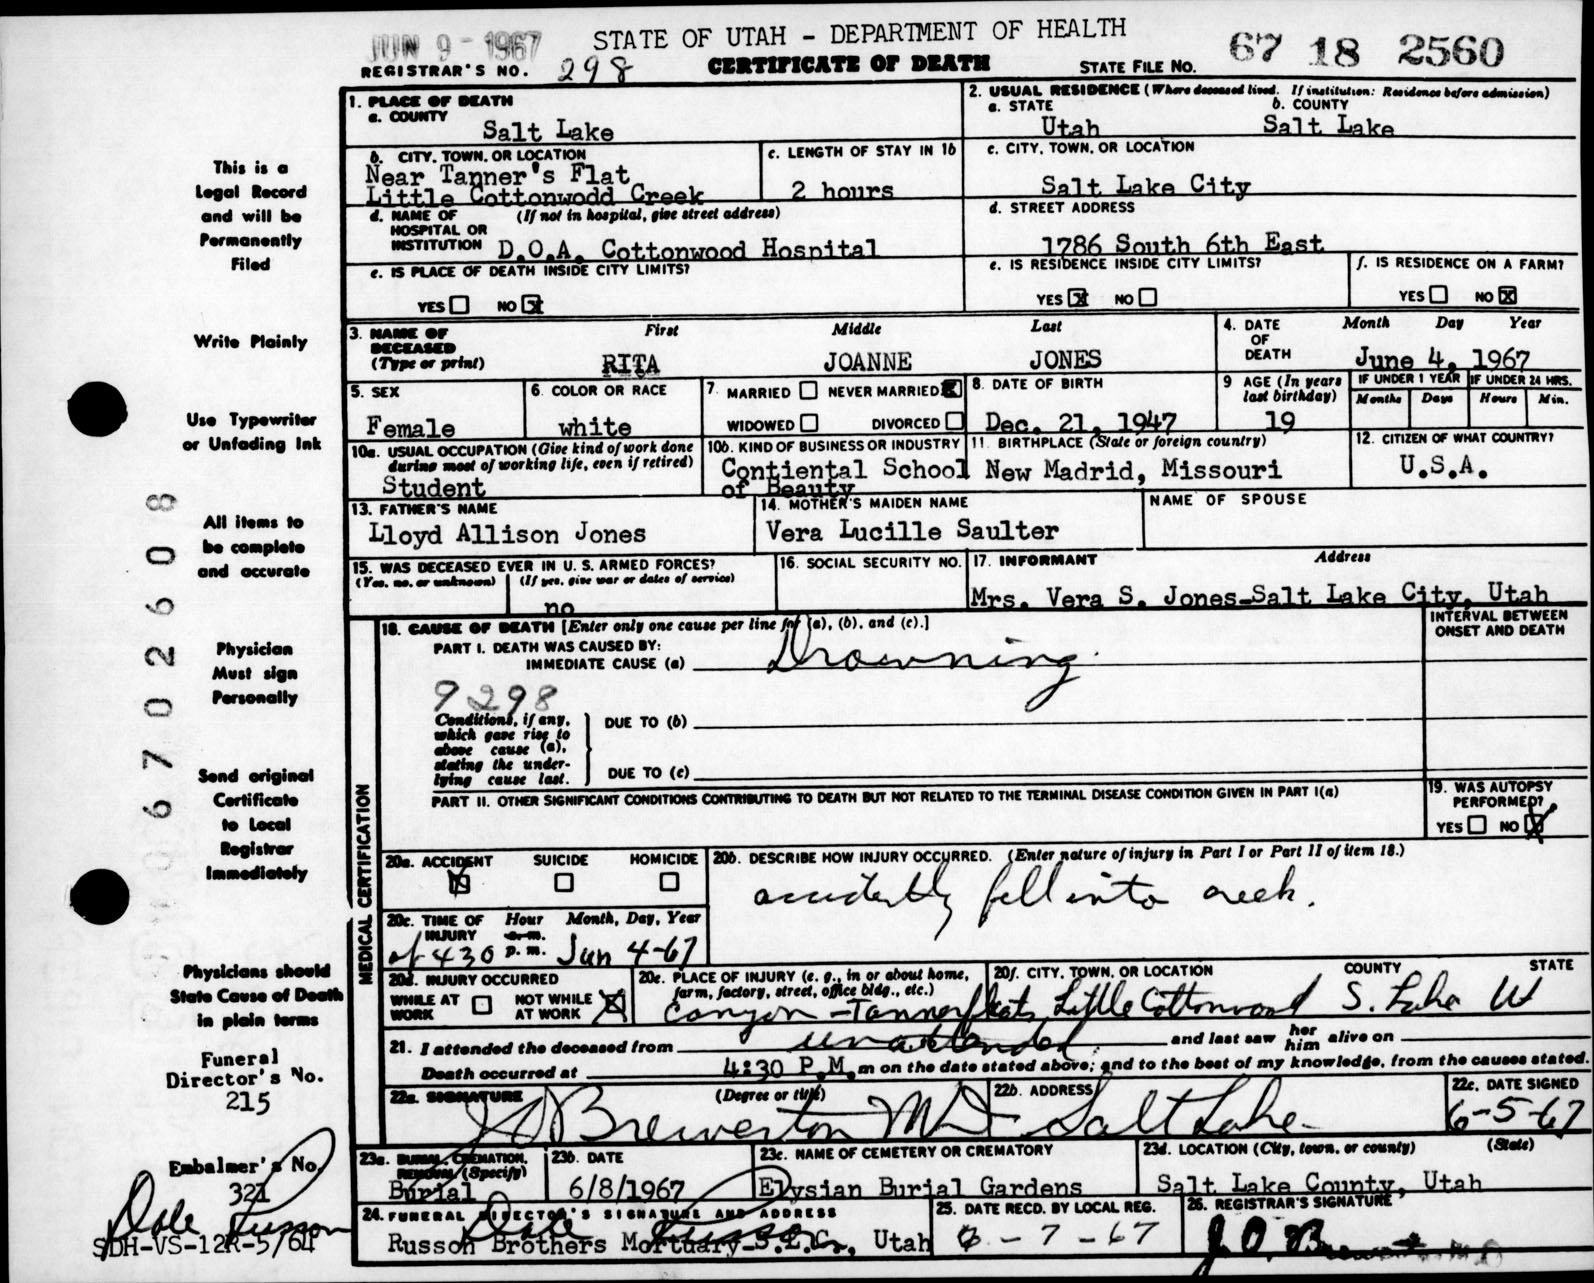 JUN 9 - 1967
STATE OF UTAH - DEPARTMENT OF HEALTH
CERTIFICATE OF DEATH
REGISTRAR'S NO. 298
STATE FILE NO. 67 18 2560
1. PLACE OF DEATH
a. COUNTY
Salt Lake
2. USUAL RESIDENCE (Where deceased lived. If institution: Residence before admission)
a. STATE b. COUNTY
Utah Salt Lake
b. CITY, TOWN, OR LOCATION
Near Tanner's Flat
Little Cottonwodd Creek
c. LENGTH OF STAY IN 1b
2 hours
c. CITY, TOWN, OR LOCATION
Salt Lake City
d. NAME OF (If not in hospital, give street address)
HOSPITAL OR
INSTITUTION D.O.A. Cottonwood Hospital
d. STREET ADDRESS
1786 South 6th East
e. IS PLACE OF DEATH INSIDE CITY LIMITS?
YES NO X
e. IS RESIDENCE INSIDE CITY LIMITS?
YES X NO
f. IS RESIDENCE ON A FARM?
YES NO X
3. NAME OF
DECEASED
(Type or print)
First Middle Last
RITA JOANNE JONES
4. DATE
OF
DEATH
Month Day Year
June 4, 1967
5. SEX
Female
6. COLOR OR RACE
white
7. MARRIED NEVER MARRIED X
WIDOWED DIVORCED
8. DATE OF BIRTH
Dec. 21, 1947
9 AGE (In years
last birthday)
19
IF UNDER 1 YEAR IF UNDER 24 HRS.
Months Days Hours Min.
10a. USUAL OCCUPATION (Give kind of work done
during most of working life, even if retired)
Student
10b. KIND OF BUSINESS OR INDUSTRY
Contiental School
of Beauty
11. BIRTHPLACE (State or foreign country)
New Madrid, Missouri
12. CITIZEN OF WHAT COUNTRY?
U.S.A.
13. FATHER'S NAME
Lloyd Allison Jones
14. MOTHER'S MAIDEN NAME
Vera Lucille Saulter
NAME OF SPOUSE
15. WAS DECEASED EVER IN U. S. ARMED FORCES?
(Yes, no, or unknown) (If yes, give war or dates of service)
no
16. SOCIAL SECURITY NO.
17. INFORMANT Address
Mrs. Vera S. Jones-Salt Lake City, Utah
18. CAUSE OF DEATH [Enter only one cause per line for (a), (b), and (c).]
PART I. DEATH WAS CAUSED BY:
IMMEDIATE CAUSE (a) Drowning
INTERVAL BETWEEN
ONSET AND DEATH
9298
Conditions, if any,
which gave rise to
above cause (a),
stating the under-
lying cause last.
DUE TO (b)
DUE TO (c)
PART II. OTHER SIGNIFICANT CONDITIONS CONTRIBUTING TO DEATH BUT NOT RELATED TO THE TERMINAL DISEASE CONDITION GIVEN IN PART I(a)
19. WAS AUTOPSY
PERFORMED?
YES NO X
MEDICAL CERTIFICATION
20a. ACCIDENT SUICIDE HOMICIDE
X
20b. DESCRIBE HOW INJURY OCCURRED. (Enter nature of injury in Part I or Part II of item 18.)
accidently fell into creek.
20c. TIME OF Hour Month, Day, Year
INJURY a.m.
430 p.m. Jun 4-67
20d. INJURY OCCURRED
WHILE AT NOT WHILE X
WORK AT WORK
20e. PLACE OF INJURY (e. g., in or about home,
farm, factory, street, office bldg., etc.)
Canyon - Tanner flats
20f. CITY, TOWN, OR LOCATION COUNTY STATE
Little Cottonwood S. Lake Ut
21. I attended the deceased from unattended and last saw her him alive on
Death occurred at 4:30 P.M. m on the date stated above; and to the best of my knowledge, from the causes stated.
22a. SIGNATURE (Degree or title)
Brewerton MD
22b. ADDRESS
Salt Lake
22c. DATE SIGNED
6-5-67
23a. BURIAL, CREMATION,
REMOVAL (Specify)
Burial
23b. DATE
6/8/1967
23c. NAME OF CEMETERY OR CREMATORY
Elysian Burial Gardens
23d. LOCATION (City, town, or county) (State)
Salt Lake County, Utah
24. FUNERAL DIRECTOR'S SIGNATURE AND ADDRESS
Dale Russon
Russon Brothers Mortuary-S.L.C., Utah
25. DATE RECD. BY LOCAL REG.
6-7-67
26. REGISTRAR'S SIGNATURE
This is a
Legal Record
and will be
Permanently
Filed
Write Plainly
Use Typewriter
or Unfading Ink
All items to
be complete
and accurate
Physician
Must sign
Personally
Send original
Certificate
to Local
Registrar
Immediately
Physicians should
State Cause of Death
in plain terms
Funeral
Director's No.
215
Embalmer's No.
321
Dale Russon
SDH-VS-12R-5/64
6702608